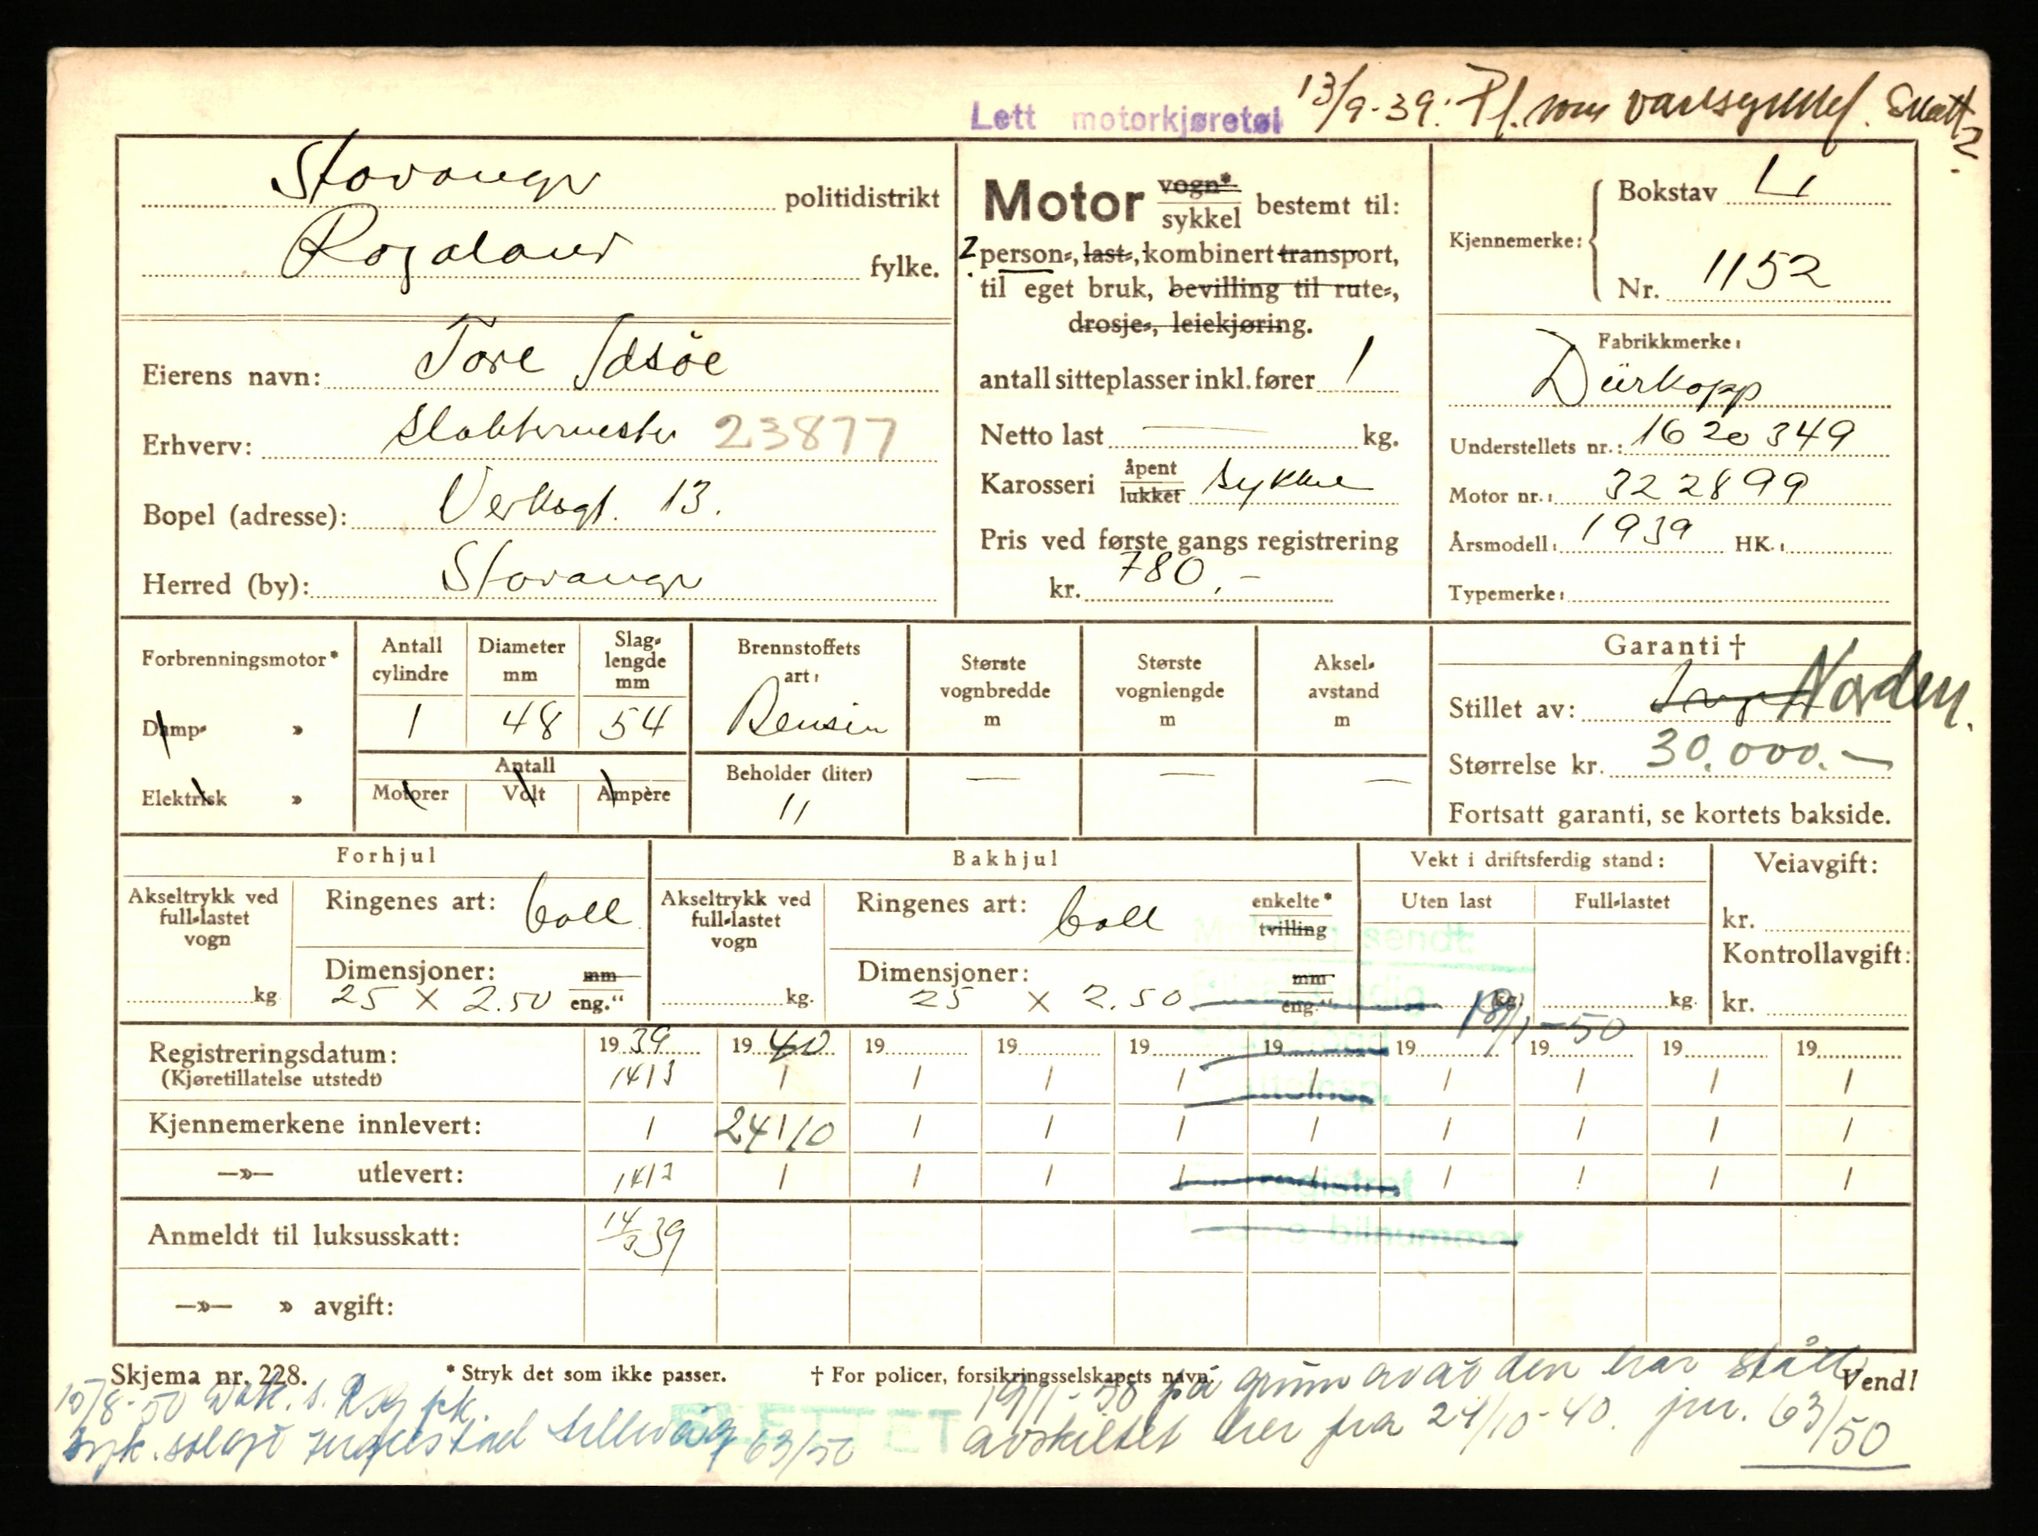 Lett motorkjøretøi 13/9-39. Pl. som varesykkel. Skatt
Stavanger politidistrikt
Rogaland fylke.
Eierens navn: Tore Idsöe
Erhverv: Slaktermester 23877
Bopel (adresse): Verksgt. 13.
Herred (by): Stavanger
Motor vogn* sykkel bestemt til:
2 person-, last-, kombinert transport,
til eget bruk, bevilling til rute-,
drosje-, leiekjøring.
antall sitteplasser inkl. fører 1
Netto last — kg.
Karosseri åpent lukket sykkel
Pris ved første gangs registrering
kr. 780,-
Kjennemerke: Bokstav L
Nr. 1152
Fabrikkmerke:
Dürkopp
Understellets nr.: 1620349
Motor nr.: 322899
Årsmodell: 1939 HK.:
Typemerke:
Forbrenningsmotor*
Damp- »
Elektrisk »
Antall cylindre 1
Diameter mm 48
Slag-lengde mm 54
Antall
Motorer Volt Ampère
Brennstoffets art: Bensin
Beholder (liter) 11
Største vognbredde m —
Største vognlengde m —
Aksel-avstand m —
Garanti †
Stillet av: Norden.
Størrelse kr. 30.000.—
Fortsatt garanti, se kortets bakside.
Forhjul
Akseltrykk ved full-lastet vogn
kg
Ringenes art: Coll
Dimensjoner: mm
25 x 2.50 eng."
Bakhjul
Akseltrykk ved full-lastet vogn
kg.
Ringenes art: Coll enkelte* tvilling
Dimensjoner: mm
25 x 2.50 eng."
Vekt i driftsferdig stand:
Uten last Full-lastet
kg. kg.
Veiavgift:
kr.
Kontrollavgift:
kr.
Melding sendt:
19/1-50
Registreringsdatum: 1939 1940 19 19 19 19 19 19 19 19
(Kjøretillatelse utstedt) 14/3 / / / / / / / / /
Kjennemerkene innlevert: / 24/10 / / / / / / / /
—»— utlevert: 14/3 / / / / / / / / /
registret
bilnummer
Anmeldt til luksusskatt: 14/3 39
—»— » avgift:
Skjema nr. 228. * Stryk det som ikke passer. † For policer, forsikringsselskapets navn. Vend!
SLETTET
19/1-50 på grunn av at den har stått
avskiltet her fra 24/10-40. jnr. 63/50
15/8-50
63/50